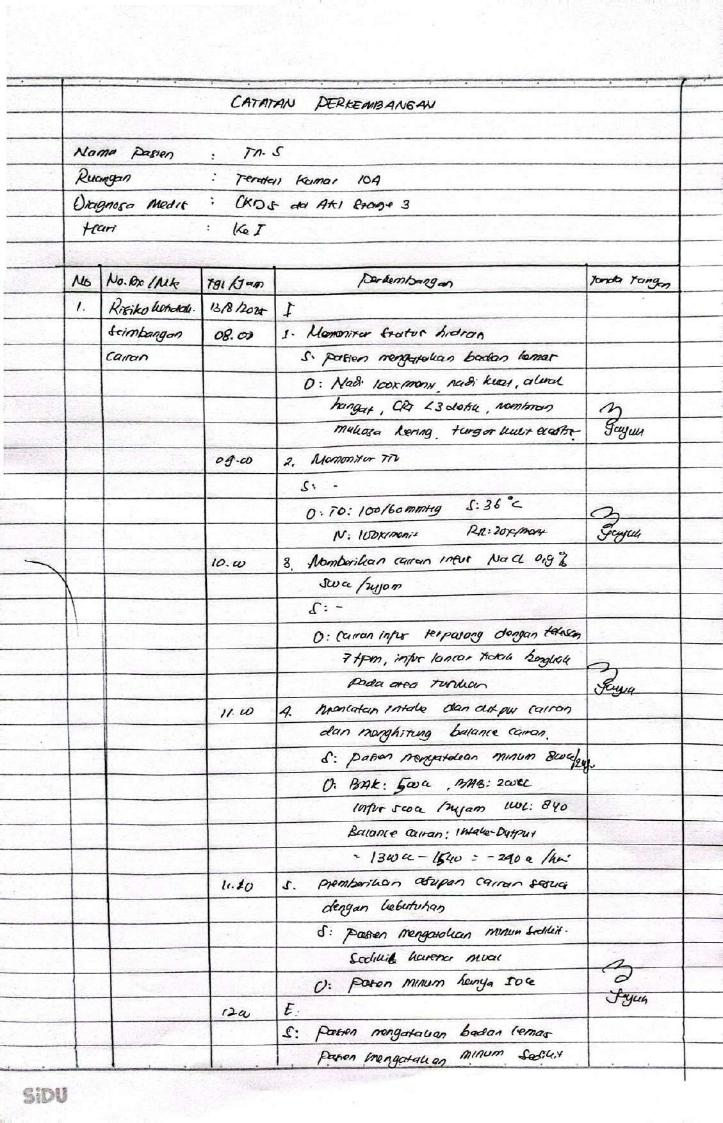 CATATAN PERKEMBANGAN
Nama Pasien : Tn. S
Ruangan : Teratai Kamar 104
Diagnosa Medis : CKD5 dd AKI Stage 3
Hari : Ke I
No No. Dx /Mk Tgl /Jam Perkembangan Tanda Tangan
1. Risiko ketidak- 13/8/2025 I
seimbangan 08.00 1. Memonitor status hidrasi
cairan S: pasien mengatakan badan lemas
O: Nadi 100x/menit, nadi kuat, akral
hangat, CRT <3 detik, membran
mukosa kering, turgor kulit elastis.
09.00 2. Memonitor TTV
S: -
O: TD: 100/60 mmHg S: 36 °C
N: 100x/menit RR: 20x/menit
10.00 3. Memberikan cairan infus NaCl 0,9 %
500cc /24jam
S: -
O: Cairan infus terpasang dengan tetesan
7 tpm, infus lancar tidak bengkak
pada area tusukan
11.00 4. Mencatat intake dan output cairan
dan menghitung balance cairan.
S: pasien mengatakan minum 800cc/24j
O: BAK: 500cc, BAB: 200cc
Infus 500cc /24jam IWL: 840
Balance cairan: Intake-Output
= 1300cc - 1540 = -240cc /hari
11.20 5. Memberikan asupan cairan sesuai
dengan kebutuhan
S: pasien mengatakan minum sedikit-
sedikit karena mual
O: pasien minum hanya 50cc
12.00 E:
S: pasien mengatakan badan lemas
pasien mengatakan minum sedikit
SiDU